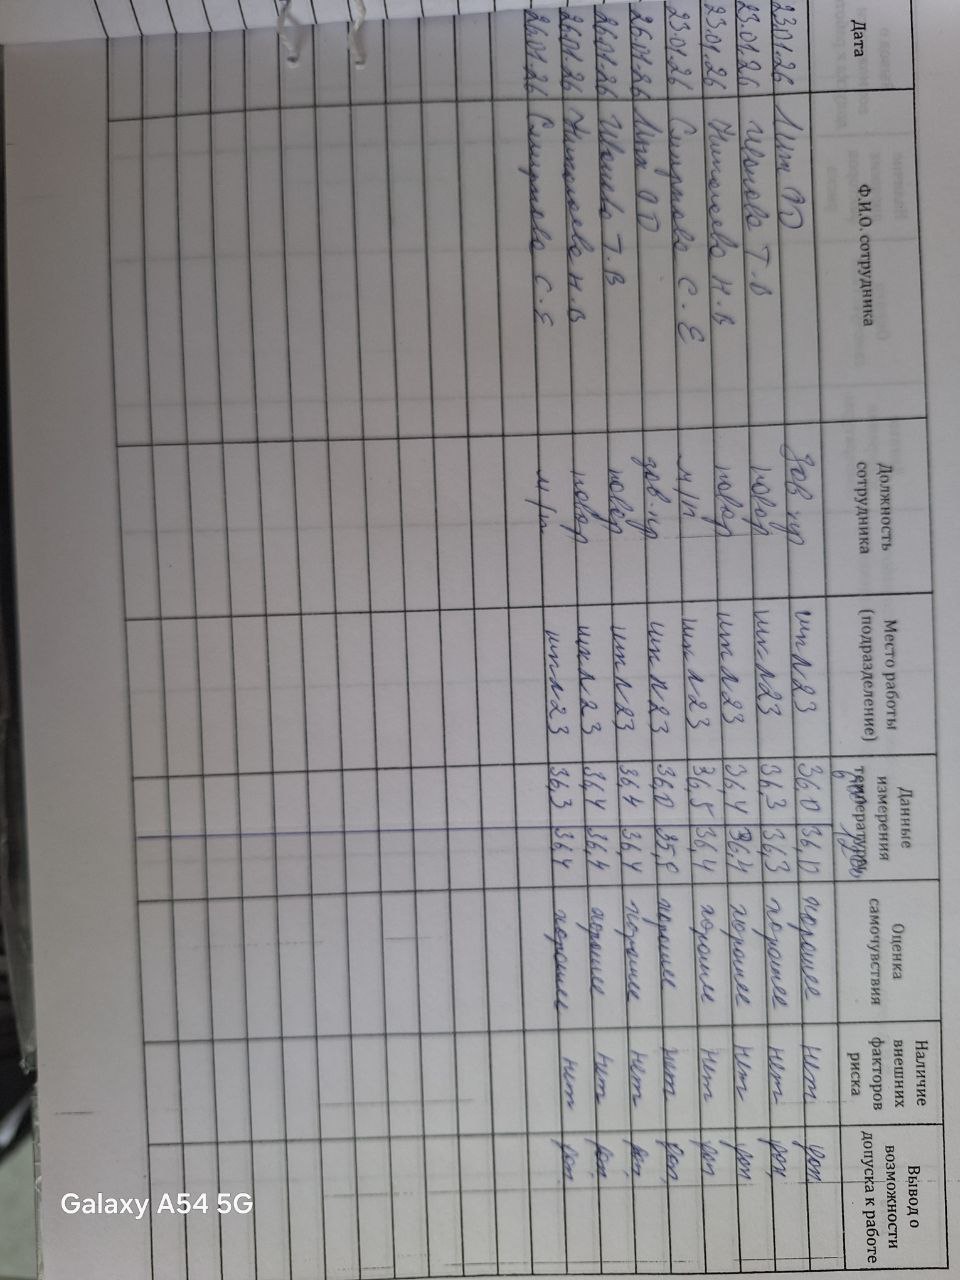 Дата Ф.И.О. сотрудника Должность сотрудника Место работы (подразделение) Данные измерения температуры Оценка самочувствия Наличие внешних факторов риска Вывод о возможности допуска к работе
23.01.26 Лит зав. пр шкл 23 36,0 36,0 хорошее нет
23.01.26 Иванова Т.В повар шкл 23 36,3 36,3 хорошее нет
23.01.26 Николаева Н.В повар шкл 23 36,4 36,4 хорошее нет
23.01.26 Смирнова С.Е м/п шкл 23 36,5 36,4 хорошее нет
26.01.26 зав. пр шкл 23 36,0 хорошее нет
26.01.26 Т.В повар шкл 23 36,4 36,4 хорошее нет
26.01.26 Николаева Н.В повар шкл 23 36,4 36,4 хорошее нет
26.01.26 Смирнова С.Е м/п шкл 23 36,3 36,4 хорошее нет
Galaxy A54 5G